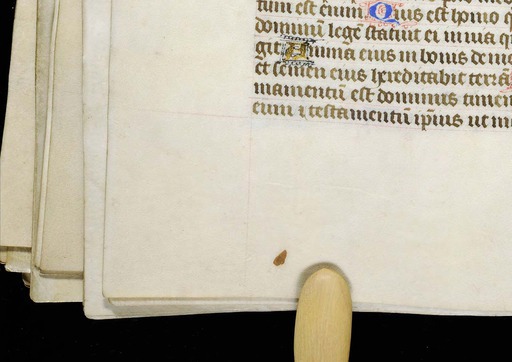 tum est enim Quis est homo q
dominū legē statuit ei in via q
git Anima eius in bonis de
et semen eius hereditabit terā
mamentū est dominus timen
eum ⁊ testamentū ip̄ius ut m